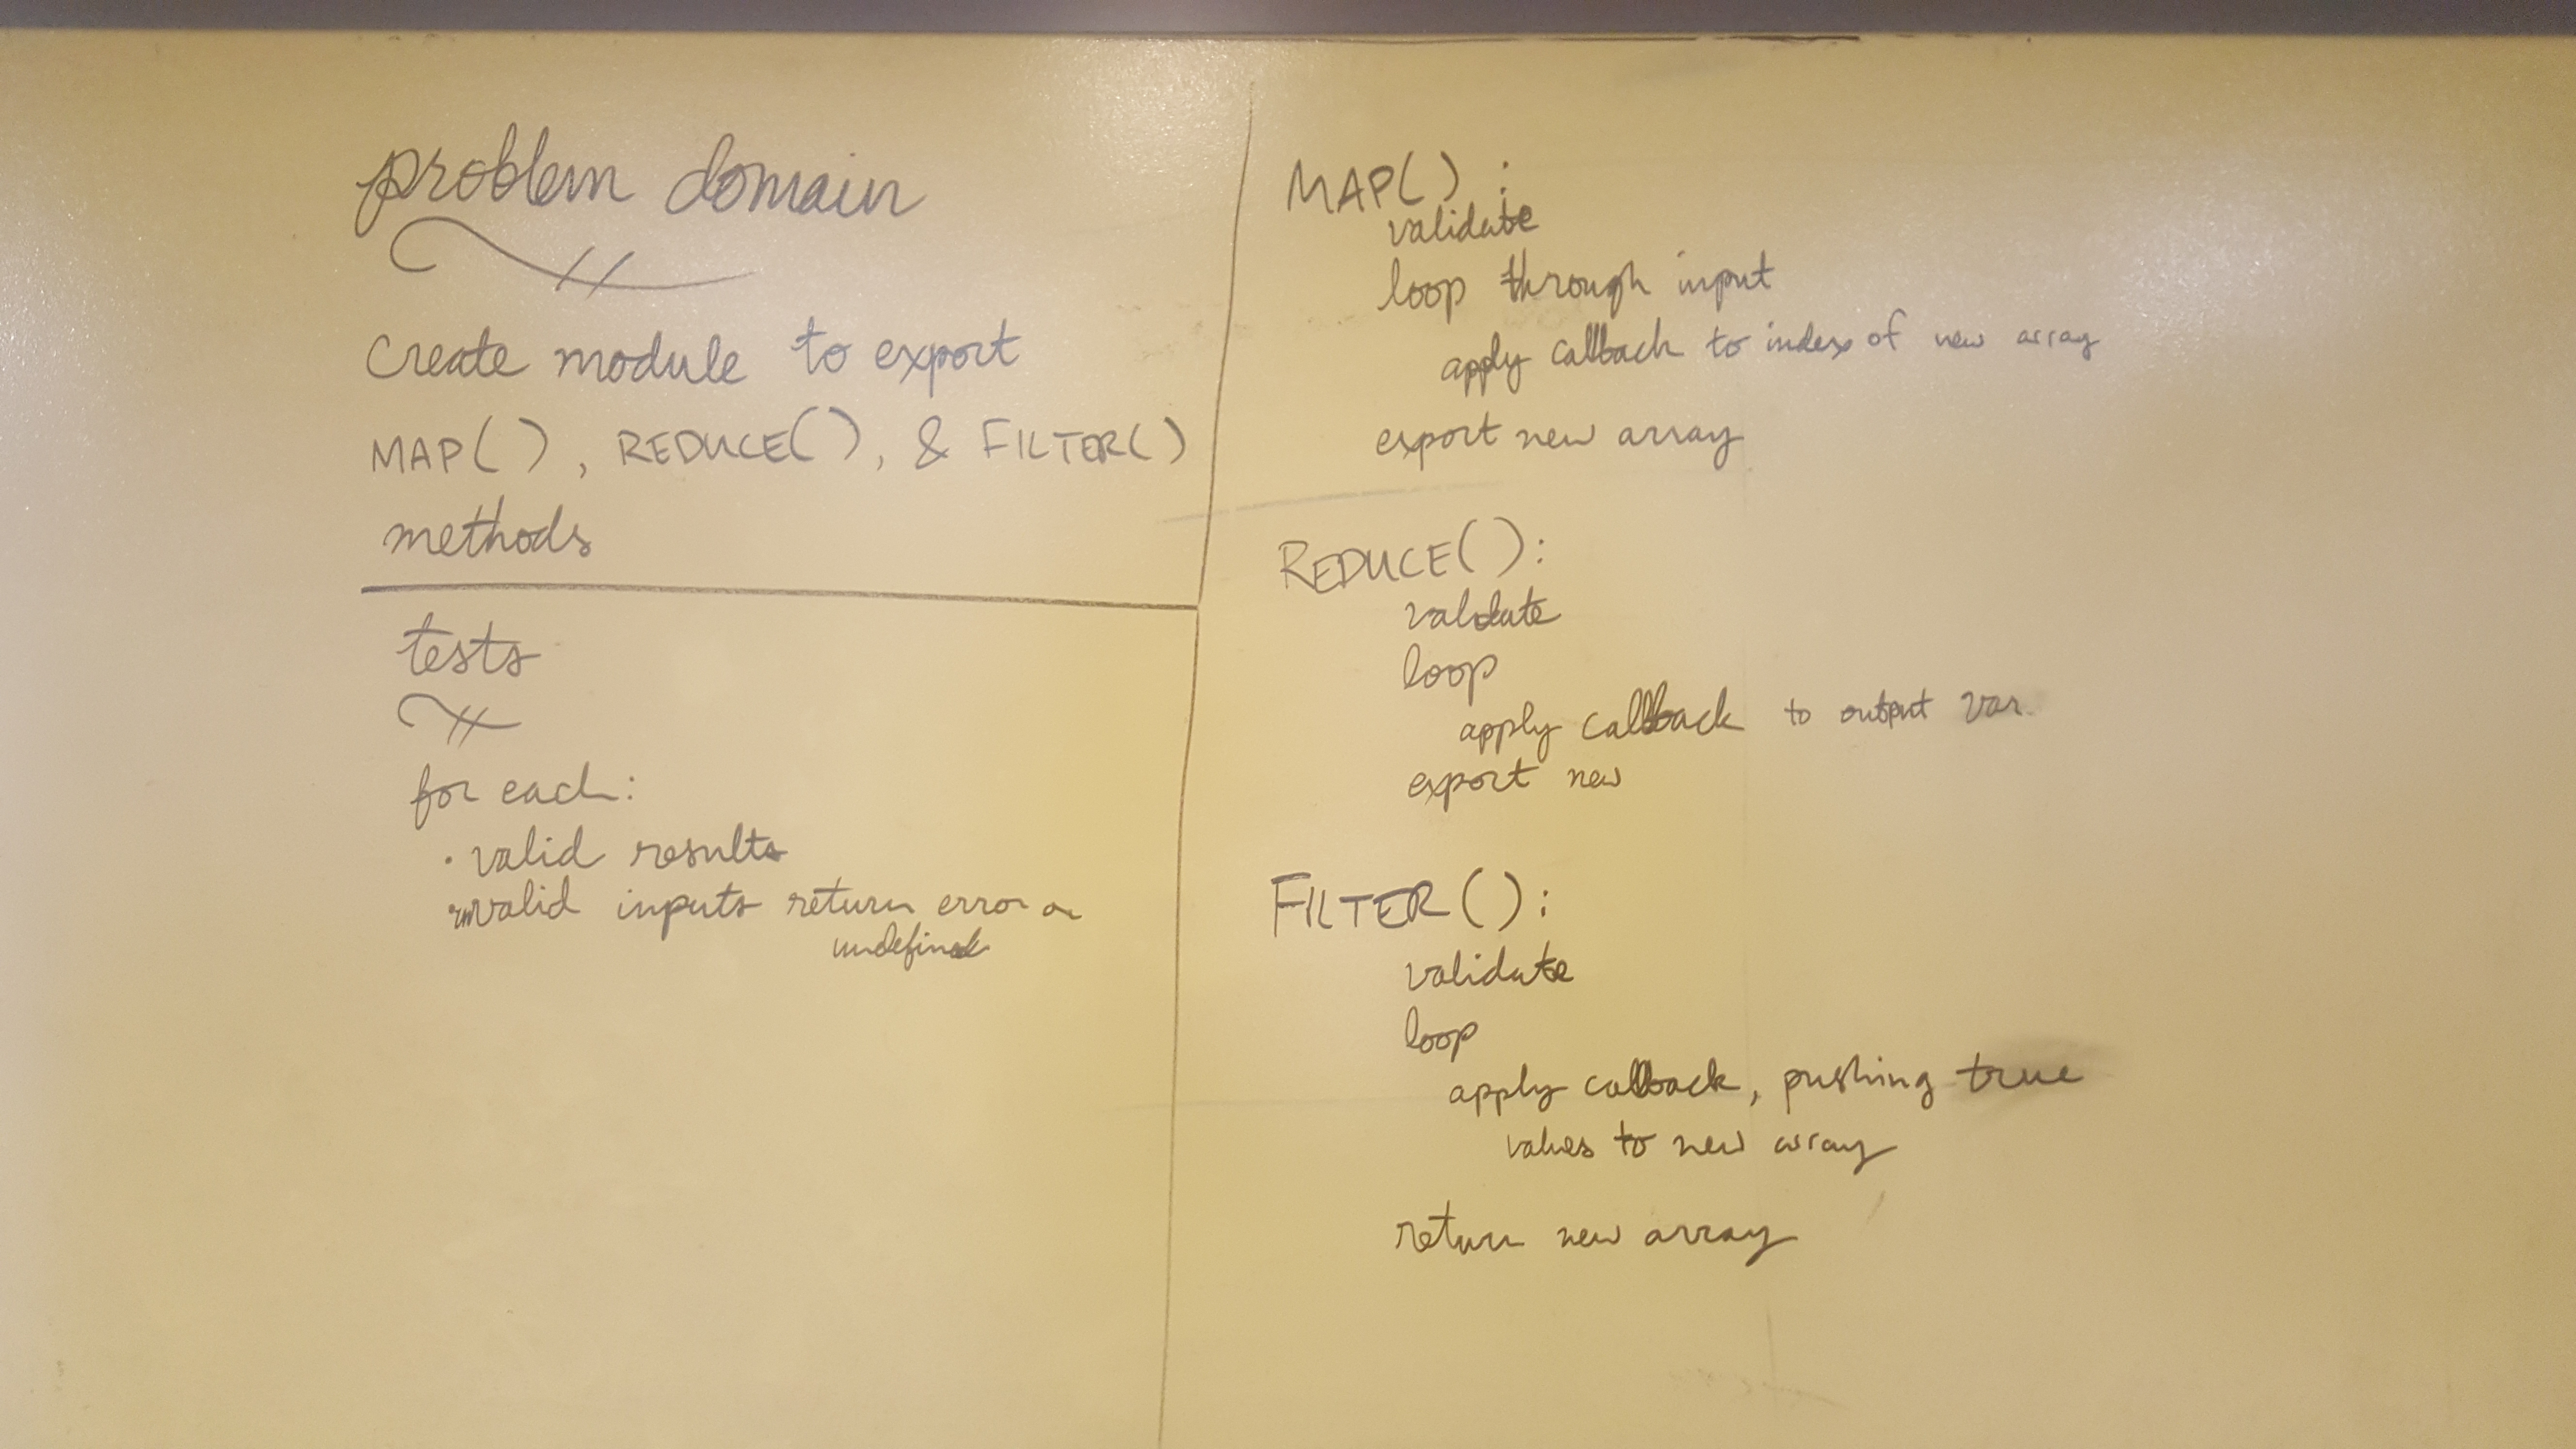 problem domain
Create module to export
MAP(), REDUCE(), & FILTER()
methods
tests
for each:
· valid results
invalid inputs return error or
undefined
MAP():
validate
loop through input
apply callback to index of new array
export new array
REDUCE():
validate
loop
apply callback to output var.
export new
FILTER():
validate
loop
apply callback, pushing true
values to new array
return new array